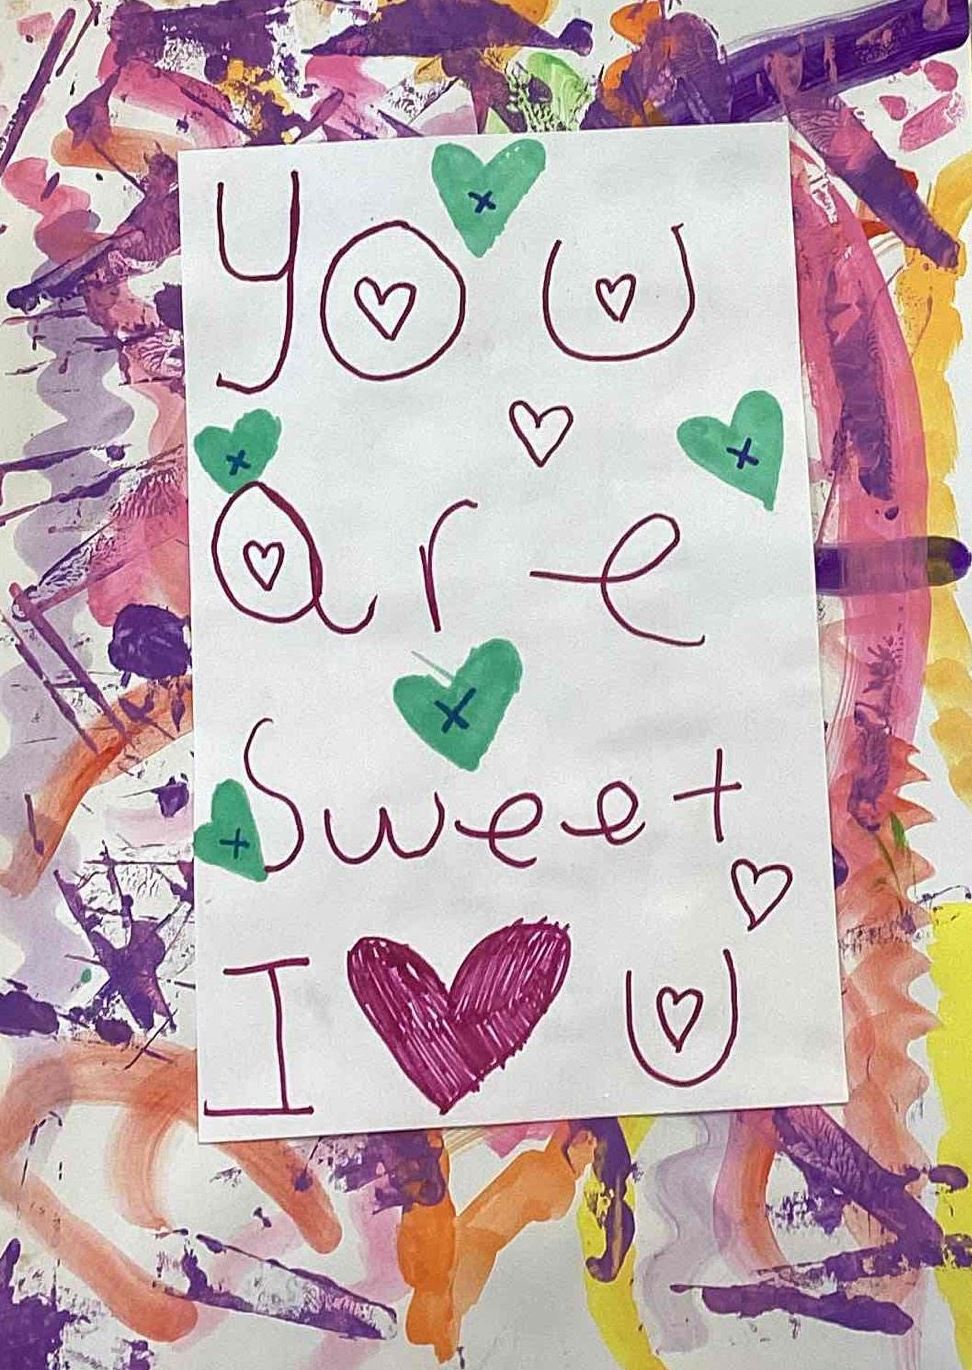 you
are
Sweet
I ♥ U